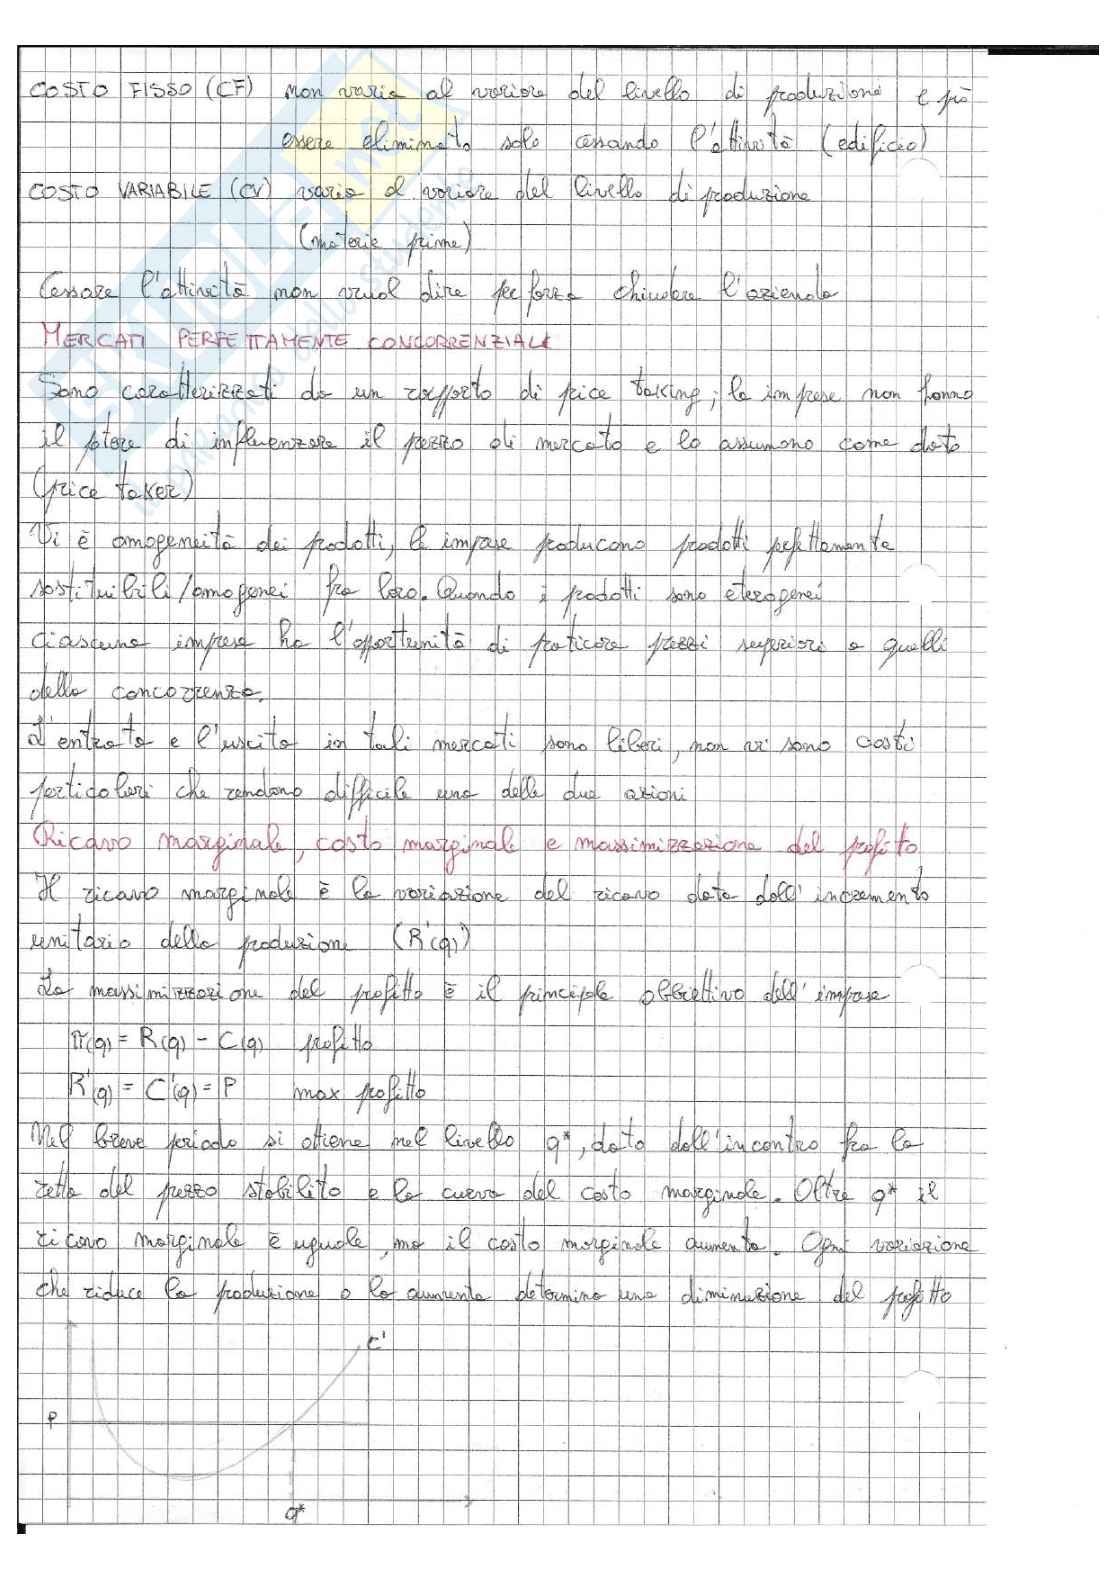 COSTO FISSO (CF) non varia al variare del livello di produzione e può
essere eliminato solo cessando l'attività (edificio)
COSTO VARIABILE (CV) varia al variare del livello di produzione
(materie prime)
Cessare l'attività non vuol dire per forza chiudere l'azienda
MERCATI PERFETTAMENTE CONCORRENZIALI
Sono caratterizzati da un rapporto di price taking; le imprese non hanno
il potere di influenzare il prezzo di mercato e lo assumono come dato
(price taker)
Vi è omogeneità dei prodotti, le imprese producono prodotti perfettamente
sostituibili/omogenei fra loro. Quando i prodotti sono eterogenei
ciascuna impresa ha l'opportunità di praticare prezzi superiori a quelli
della concorrenza.
L'entrata e l'uscita in tali mercati sono liberi, non vi sono costi
particolari che rendano difficile una delle due azioni
Ricavo marginale, costo marginale e massimizzazione del profitto
Il ricavo marginale è la variazione del ricavo data dall'incremento
unitario della produzione (R'(q))
La massimizzazione del profitto è il principale obbiettivo dell'impresa
π(q) = R(q) - C(q) profitto
R'(q) = C'(q) = P max profitto
Nel breve periodo si ottiene nel livello q*, dato dall'incontro fra la
retta del prezzo stabilito e la curva del costo marginale. Oltre q* il
ricavo marginale è uguale, ma il costo marginale aumenta. Ogni variazione
che riduce la produzione o la aumenta determina una diminuzione del profitto
C'
P
q*